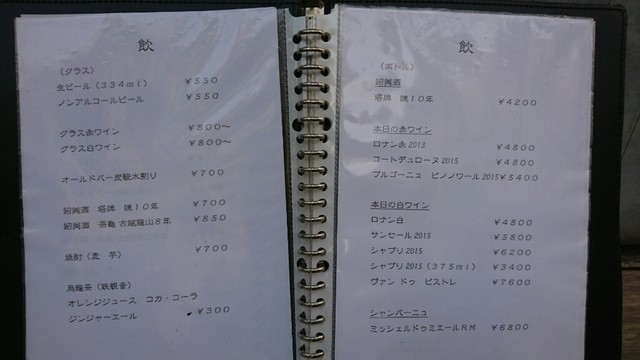 飲
(グラス)
生ビール(334ml) ¥550
ノンアルコールビール ¥550
グラス赤ワイン ¥800～
グラス白ワイン ¥800～
オールドパー炭酸水割り ¥700
紹興酒 塔牌 陳10年 ¥700
紹興酒 古越龍山8年 ¥850
焼酎(麦 芋) ¥700
烏龍茶(鉄観音)
オレンジジュース コカ・コーラ
ジンジャーエール ¥300
飲
(ボトル)
紹興酒
塔牌 陳10年 ¥4200
本日の赤ワイン
ロナン赤2013 ¥4800
コートデュローヌ2015 ¥4800
ブルゴーニュ ピノノワール2015 ¥5400
本日の白ワイン
ロナン白 ¥4800
サンセール2015 ¥5800
シャブリ2015 ¥6200
シャブリ2015(375ml) ¥3400
ヴァン ドゥ ビストレ ¥7600
シャンパーニュ
ミッシェルドゥミエールRM ¥6800